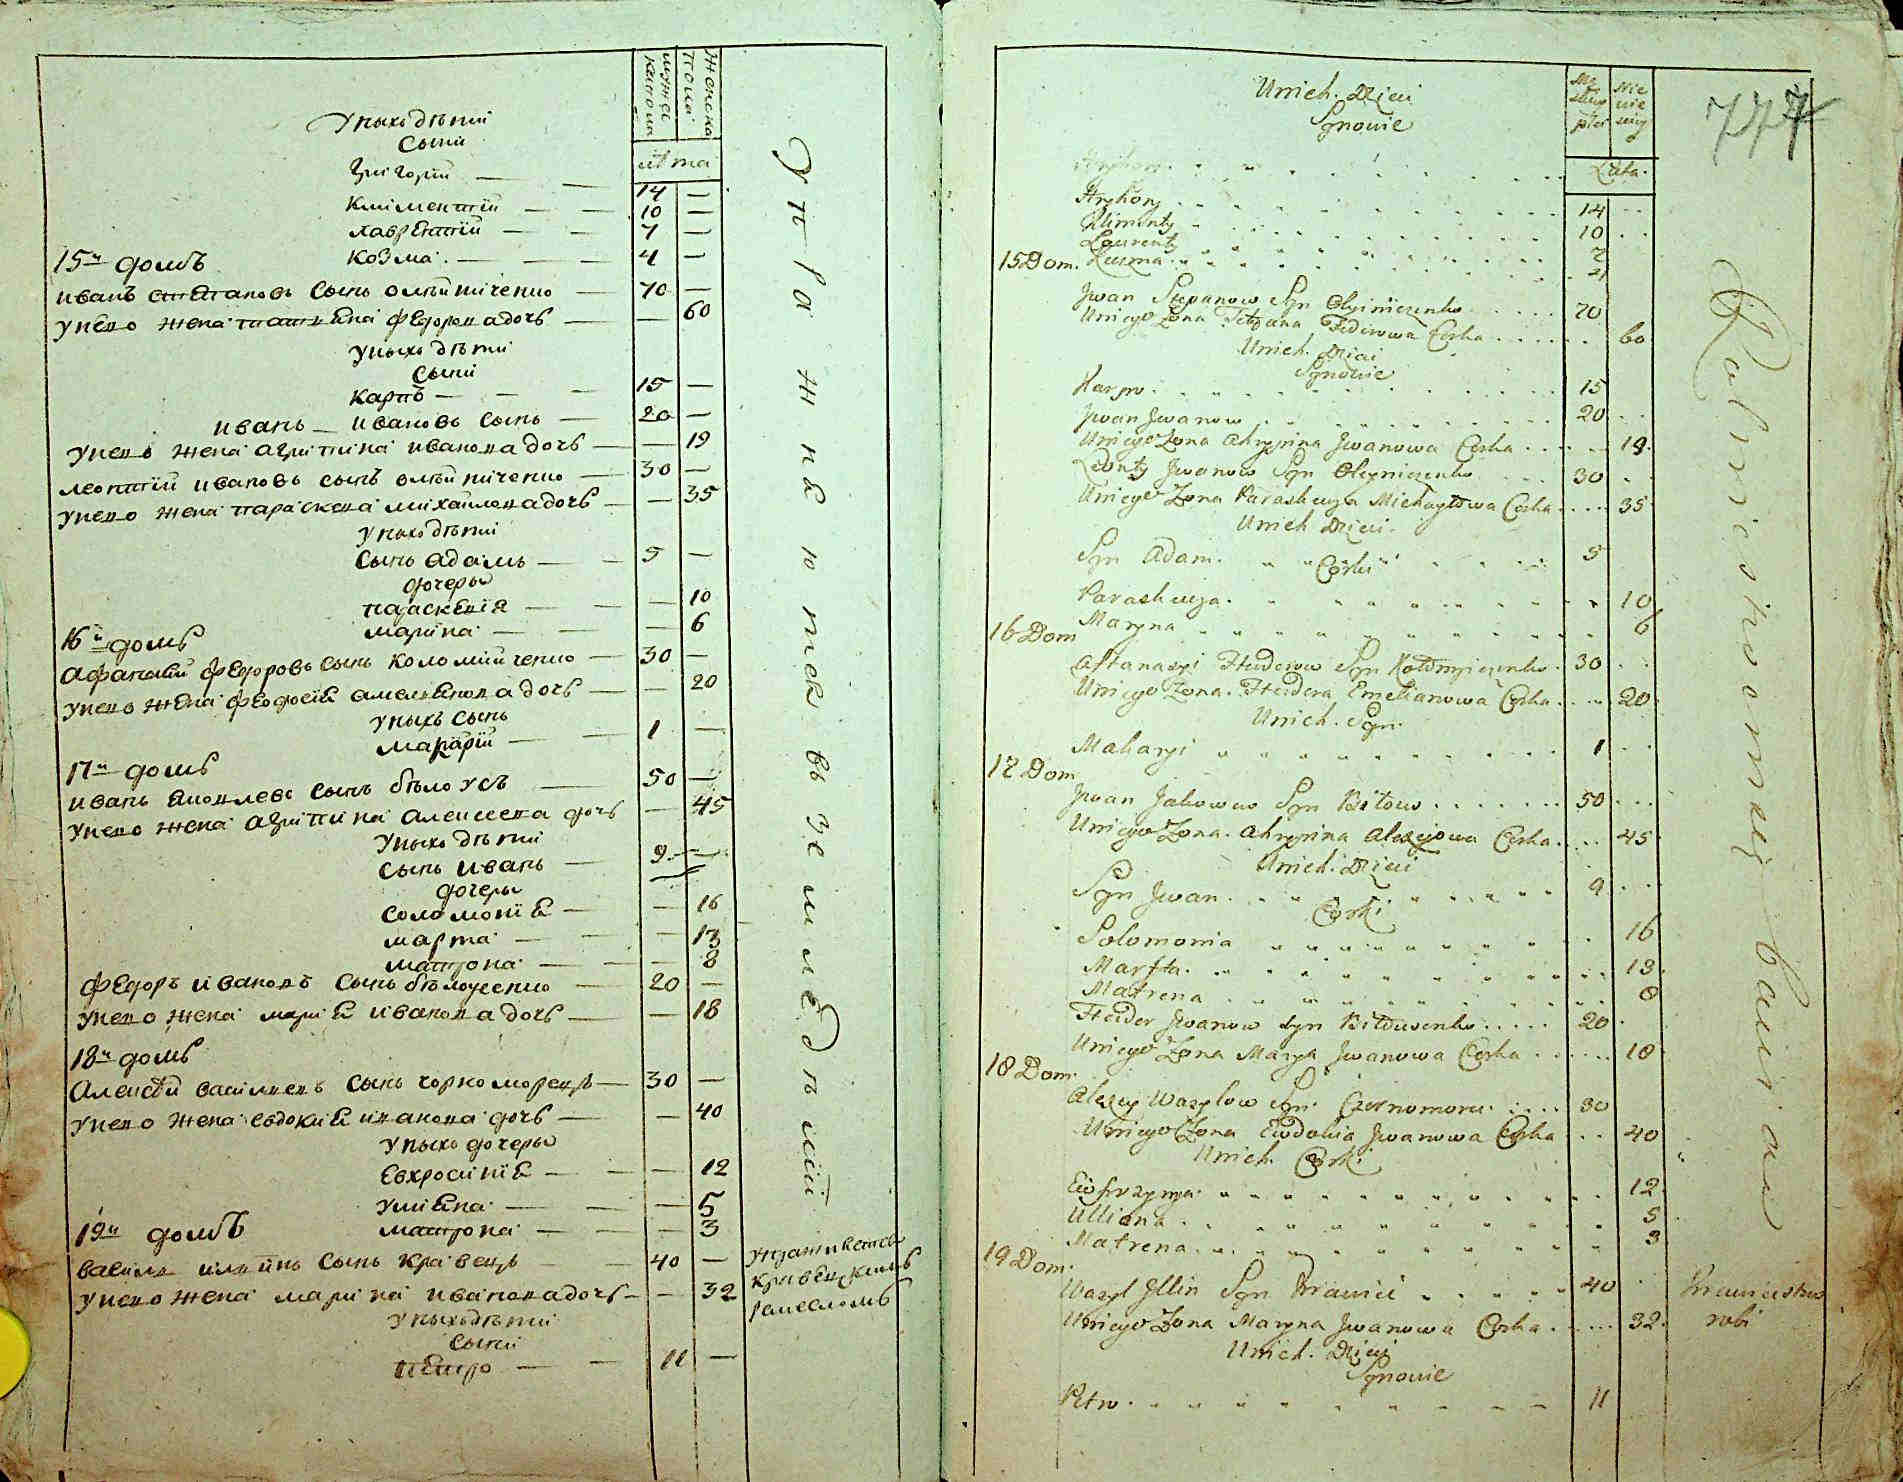 мужескаго пола
женска пола
Уныхъ дѣти
Сыни
лѣта
Григорій — — 14 —
Климентій — — 10 —
Лаврентій — — 7 —
Козма — — 4 —
15й домъ
Иванъ Степановъ сынъ Олейниченко — 70 —
Унего жена Татіяна Федорова дочь — — 60
Уныхъ дѣти
Сыни
Карпъ — — — 15 —
Иванъ — Ивановъ сынъ — 20 —
Унего жена Агрипина Иванова дочь — — 19
Леонтій Ивановъ сынъ Олейниченко — 30 —
Унего жена Параскева Михайлова дочь — — 35
Уныхъ дѣти
Сынъ Адамъ — — 5 —
дочеры
Параскевія — — — 10
Марина — — — 6
16й домъ
Афанасій Федоровъ сынъ Коломійченко — 30 —
Унего жена Феодосія Омелянова дочь — — 20
Уныхъ сынъ
Макарій — — 1 —
17й домъ
Иванъ Яковлевъ сынъ Бѣлоусъ — 50 —
Унего жена Агрипина Алексеева дочь — 45
Уныхъ дѣти
Сынъ Иванъ — 9 —
дочеры
Соломонія — — 16
Марта — — — 13
Матрона — — — 8
Федоръ Ивановъ сынъ Бѣлоусенко — 20 —
Унего жена Марія Иванова дочь — — 18
18й домъ
Алексѣй Васильевъ сынъ Чорноморецъ — 30 —
Унего жена Евдокія Иванова дочь — — 40
Уныхъ дочеры
Евхросинія — — — 12
Уліяна — — — 5
Матрона — — — 3
19й домъ
Василь Ильинъ сынъ Кравецъ — — 40 —
Унего жена Марина Иванова дочь — — 32
Уныхъ дѣти
Сыни
Петро — — 11 —
Упражнюются въ земледѣлій
Упражняется
кравецкимъ
ремесломъ
777
Unich. Dzieci
Synowie
Lata.
Hryhory 14
Klimenty 10
Laurenty 7
Kuzma 4
15 Dom.
Jwan Stepanow Syn Olejniczenko 70
Uniego Żona Tetyana Fedorowa Corka 60
Unich. Dzieci
Synowie
Karpo 15
Jwan Jwanow 20
Uniego Żona Ahrypina Jwanowa Corka 19
Leonty Jwanow Syn Oleyniczenko 30
Uniego Żona Paraskewja Michayłowa Corka 35
Unich Dzieci.
Syn Adam. 5
Corki
Paraskewja 10
Maryna 6
16 Dom
Aftanazyi Fteodorow Syn Kołomyiczenko 30
Uniego Żona Emelianowa Corka 20
Unich. Syn.
Makaryi 1
17 Dom
Jwan Jakowow Syn Biłous 50
Uniego Żona. Ahrypina Alexejowa Corka 45
Unich. Dzieci
Syn Jwan 9
Corki
Solomonia 16
Marfta 13
Matrena 8
Fteder Jwanow Syn Biłousenko 20
Uniego Żona Marya Jwanowa Corka 18
18 Dom.
Alexey Wasylow Syn Czornomorec 30
Uniego Żona Ewdokia Jwanowa Corka 40
Unich. Corki
Eufrozyna 12
Ulliana 5
Matrena 3
19 Dom.
Wasyl Jllin Syn Krawiec 40
Uniego Żona Maryna Jwanowa Corka 32
Unich. Dzieci
Synowie
Petro 11
Rolnictwem bawią
Krawiectwo
robi